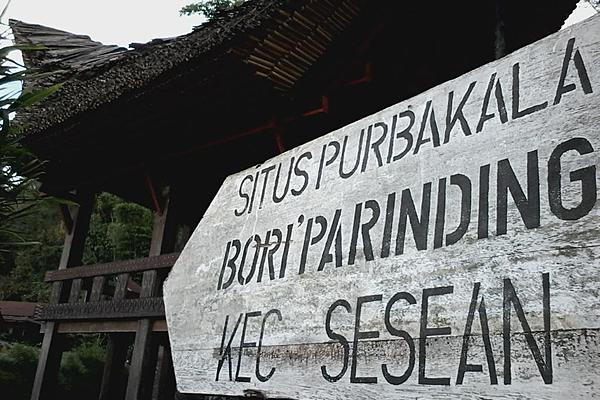 SITUS PURBAKALA
BORI'PARINDING
KEC SESEAN